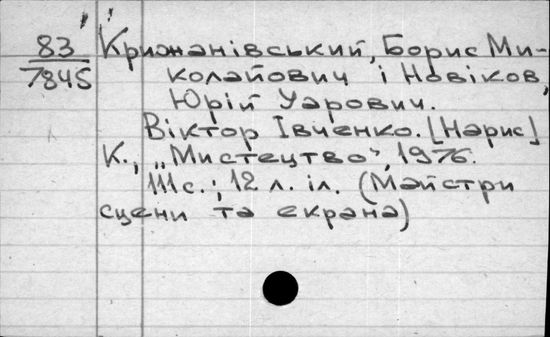 83 Крижанівський, Борис Ми-
7845 колайович і Новіков,
Юрій Уарович.
Віктор Івченко. [Нарис]
К., „Мистецтво", 1976.
111 с.; 12 л. іл. (Майстри
сцени та екрана)